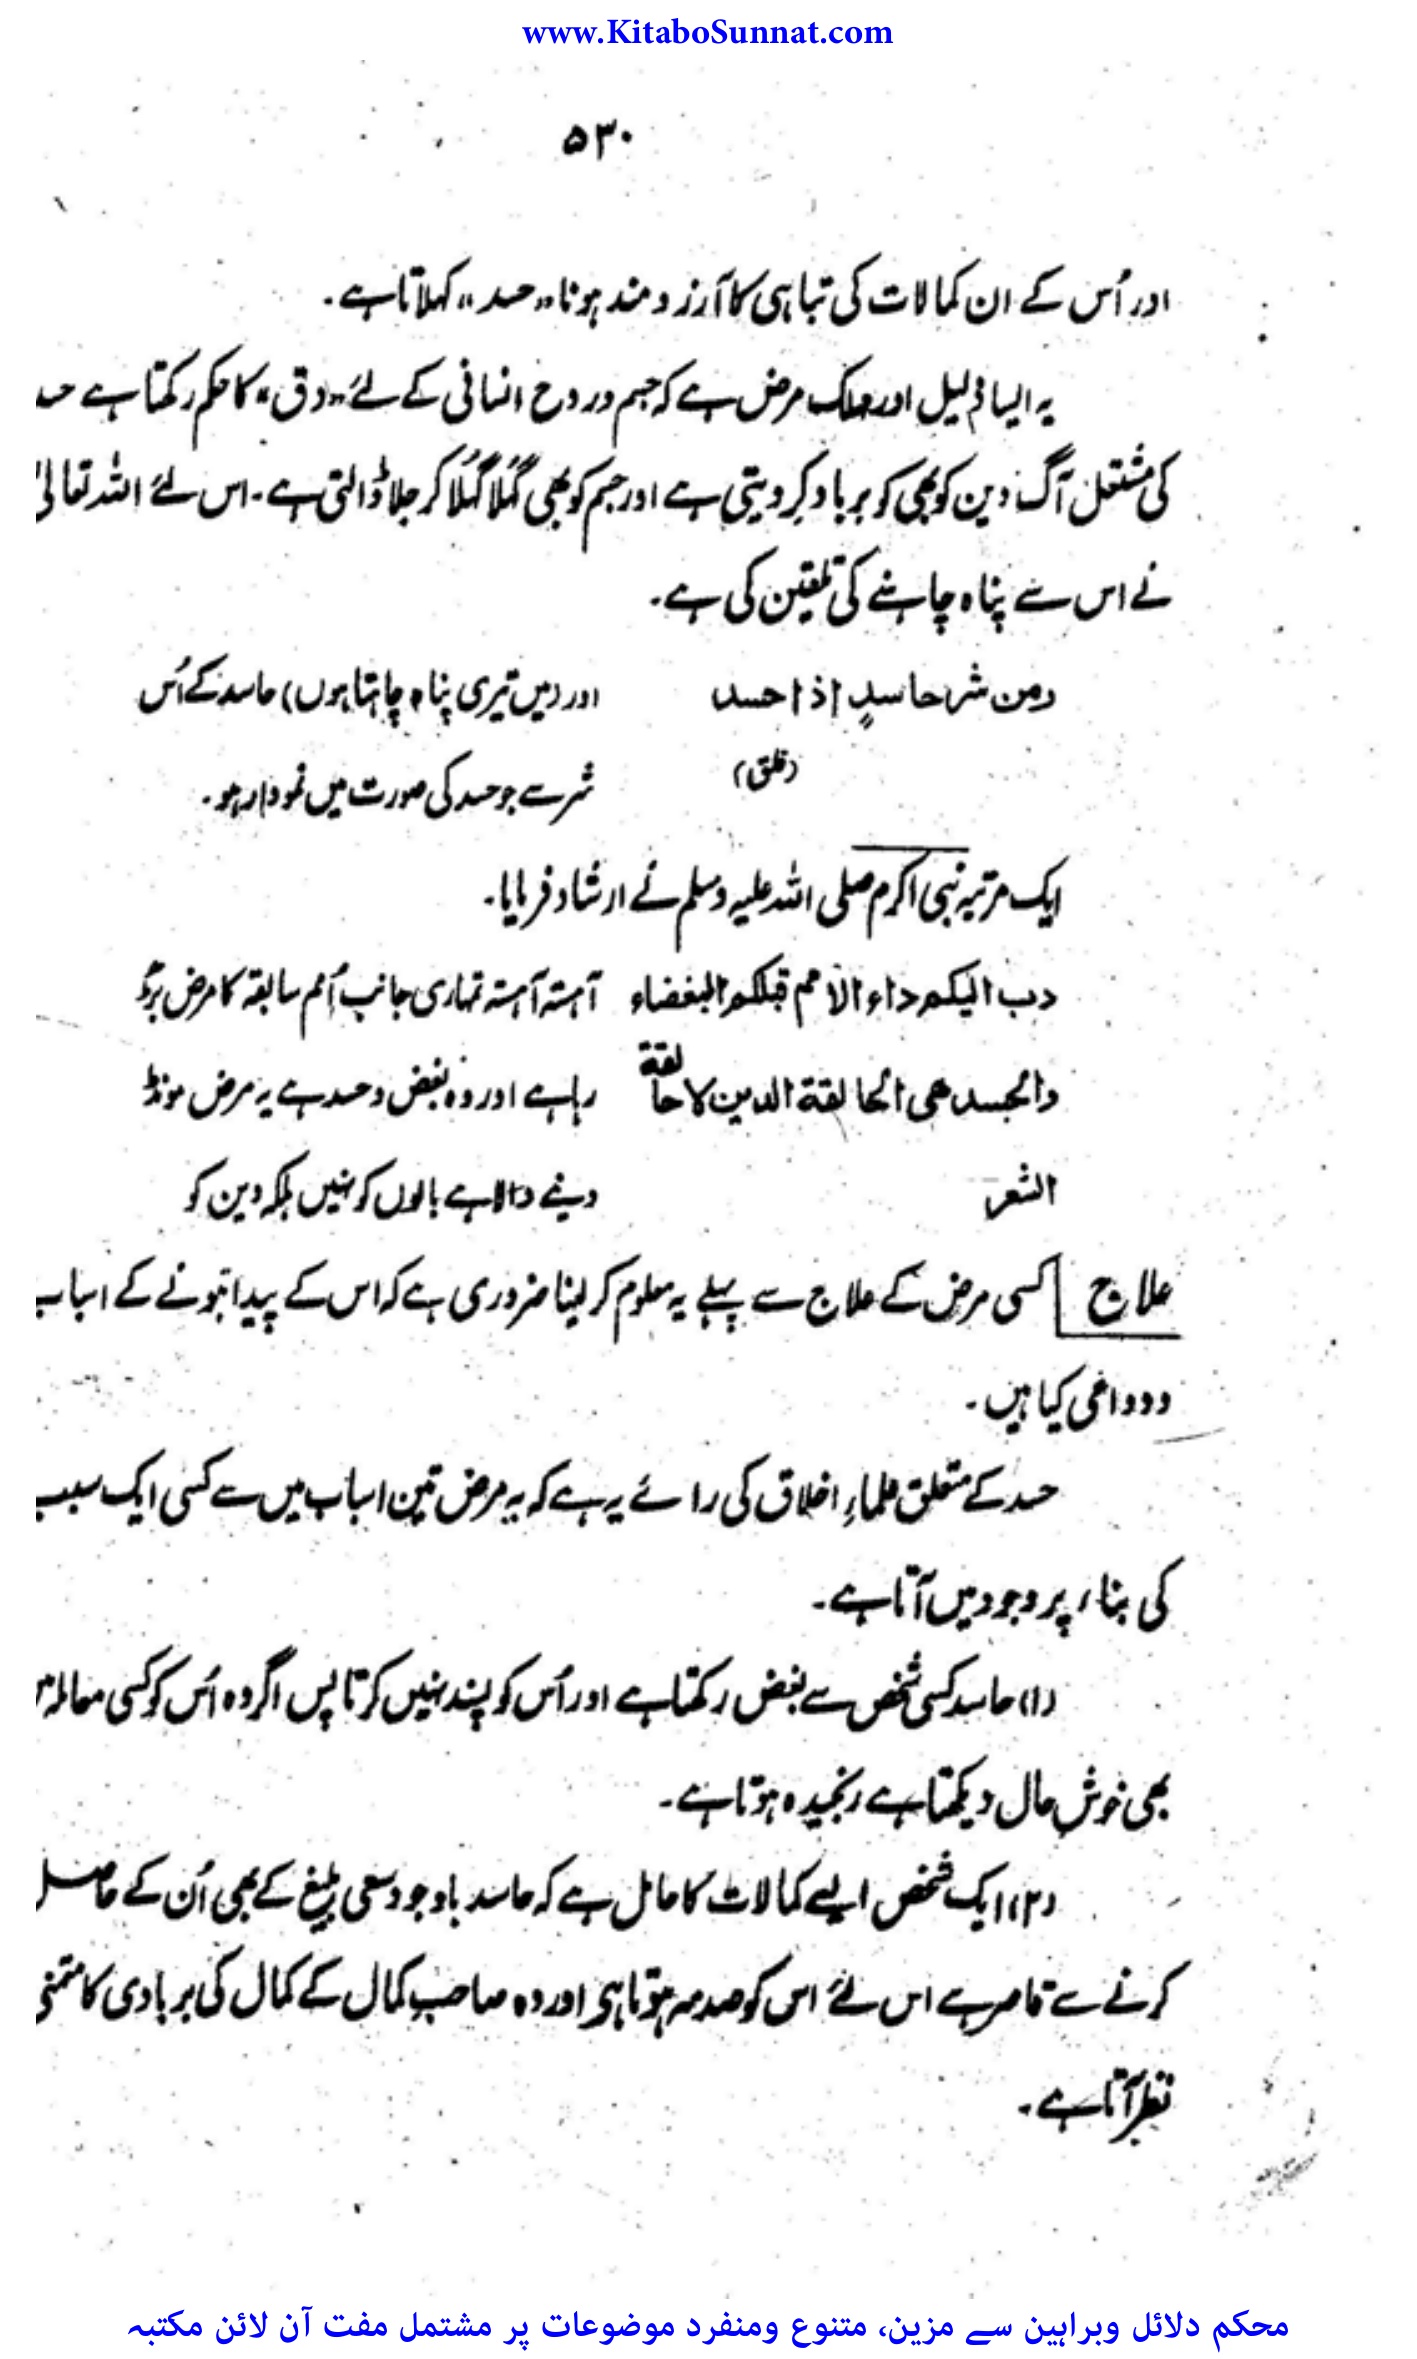 www.KitaboSunnat.com
۵۳۰
اور اُس کے ان کمالات کی تباہی کا آرزومند ہونا "حسد" کہلاتا ہے۔
یہ ایسا ذلیل اور مہلک مرض ہے کہ جسم و روح انسانی کے لئے "دق" کا حکم رکھتا ہے حسد
کی مشتعل آگ دین کو بھی کو برباد کر دیتی ہے اور جسم کو بھی گھُلا گھُلا کر جلا ڈالتی ہے۔ اس لئے اللہ تعالیٰ
نے اس سے پناہ چاہنے کی تلقین کی ہے۔
ومن شر حاسدٍ اذا حسد اور (میں تیری پناہ چاہتا ہوں) حاسد کے اُس
(فلق) شر سے جو حسد کی صورت میں نمودار ہو۔
ایک مرتبہ نبی اکرم صلی اللہ علیہ وسلم نے ارشاد فرمایا۔
دب الیکم داء الامم قبلکم البغضاء آہستہ آہستہ تمہاری جانب اُمم سابقہ کا مرض بڑھ
والحسد ھی الحالقة الدین لا حالقة رہا ہے اور وہ بغض و حسد ہے یہ مرض مونڈ
الشعر دینے والا ہے بالوں کو نہیں بلکہ دین کو
علاج کسی مرض کے علاج سے پہلے یہ معلوم کر لینا ضروری ہے کہ اس کے پیدا ہونے کے اسباب
و دواعی کیا ہیں۔
حسد کے متعلق علماءِ اخلاق کی رائے یہ ہے کہ یہ مرض تین اسباب میں سے کسی ایک سبب
کی بناء پر وجود میں آتا ہے۔
(۱) حاسد کسی شخص سے بغض رکھتا ہے اور اُس کو پسند نہیں کرتا پس اگر وہ اُس کو کسی معاملہ میں
بھی خوش حال دیکھتا ہے رنجیدہ ہوتا ہے۔
(۲) ایک شخص ایسے کمالات کا حامل ہے کہ حاسد باوجود سعی بلیغ کے بھی اُن کے حاصل
کرنے سے قاصر ہے اس لئے اس کو صدمہ ہوتا ہی اور وہ صاحبِ کمال کے کمال کی بربادی کا متمنی
نظر آتا ہے۔
محکم دلائل وبراہین سے مزین، متنوع ومنفرد موضوعات پر مشتمل مفت آن لائن مکتبہ